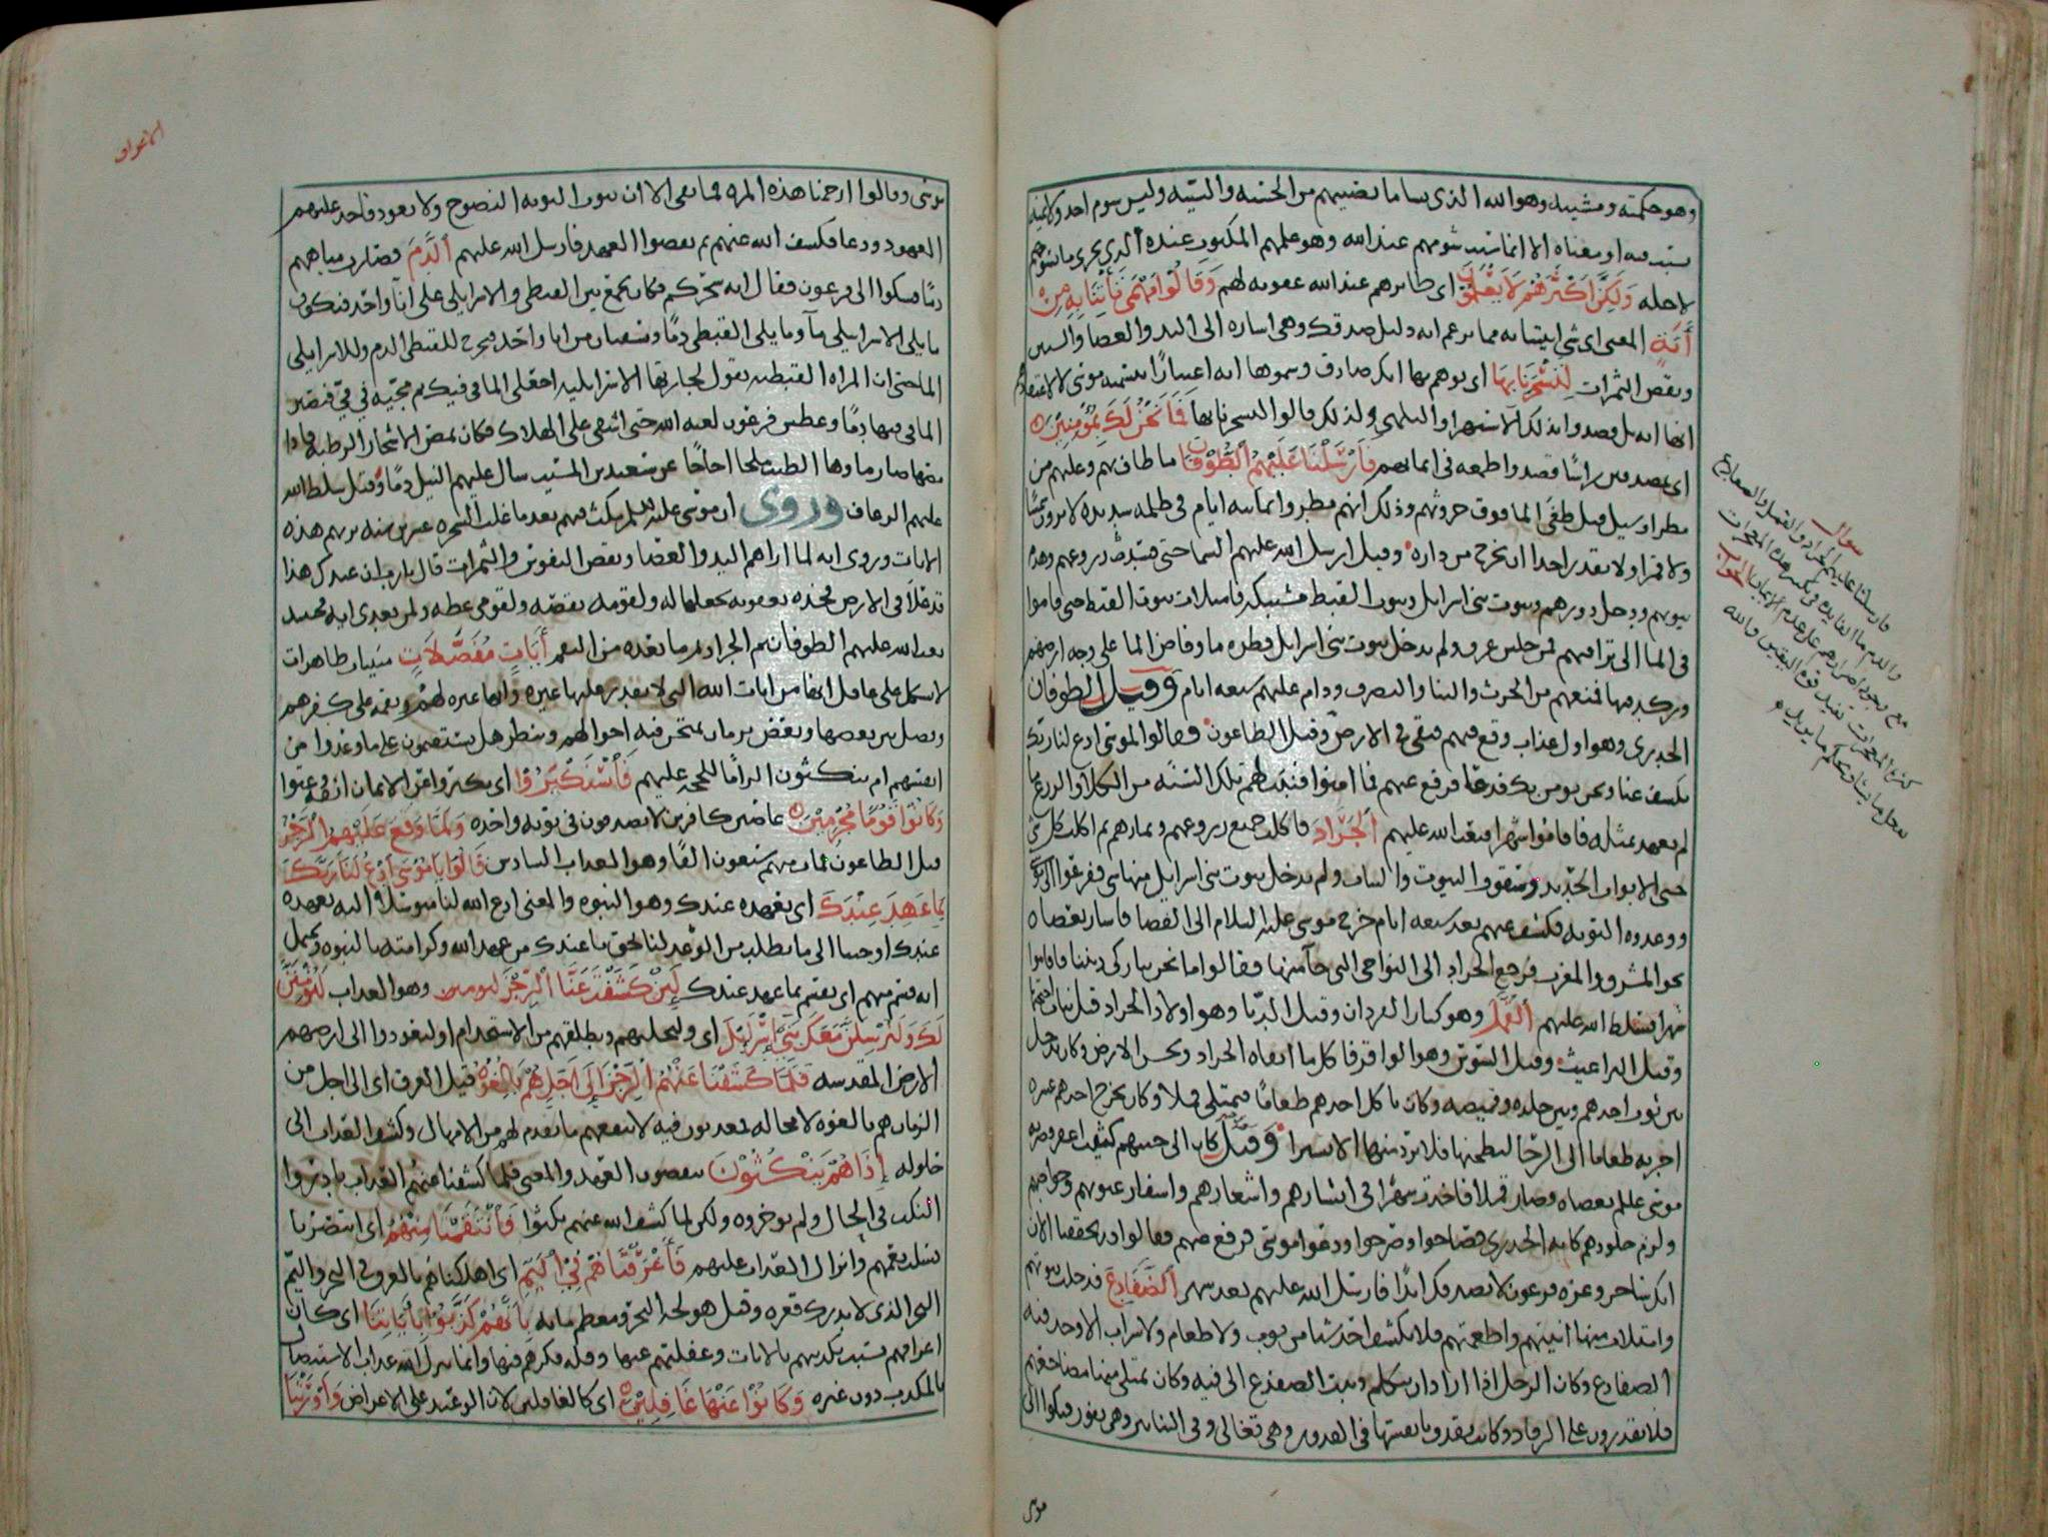 وهو حكمته ومشيته وهو الله الذي يشا ما يصيبهم من الحسنه والسيئه وليس شوم احد ولا يمنه
بسبب فيه او معناه الا انما سبب شومهم عند الله وهو عملهم المكتوب عنده الذي يجري ما يسوهم
لاجله وَلَكِنَّ أَكْثَرَهُمْ لَا يَعْلَمُونَ اى طايرهم عند الله عقوبه لهم وَقَالُوا مَهْمَى تَأْتِنَا بِهِ مِنْ
أَيَةٍ المعنى اى شي اتيتنا به مما تزعم انه دليل صدقك وهى اشاره الى اليد والعصا والسنين
ونقص الثمرات لِتَسْحَرَنَا بِهَا اى توهم بها انك صادق وسموها ايه اعتبارًا بتسميه موسى لا لاعتقادهم
انها ايه بل قصدوا بذلك الاستهزا والتلهي ولذلك قالوا لتسحرنا بها فَمَا نَحْنُ لَكَ بِمُؤْمِنِينَ
اى بمصدقين راسًا قصدوا طمعه فى ايمانهم فَأَرْسَلْنَا عَلَيْهِمُ الطُّوْفَانَ ما طاف بهم وعليهم من
مطر او سيل قيل طفى الما فوق حروثهم وذلك انهم مطروا ثمانيه ايام في ظلمه شديده لا يرون شمسًا
ولا قمرا ولا يقدر احدا ان يخرج من داره وقيل ارسل الله عليهم السما حتى
بيوتهم ودخل دورهم وبيوت بني اسرايل وبيوت القبط مشتبكه فامتلات بيوت القبط حتى قاموا
فى الما الى تراقيهم فمن جلس غرق ولم يدخل بيوت بني اسرايل قطره ما وفاض الما على وجه ارضهم
وركد فيها فمنعهم من الحرث والبنا والتصرف ودام عليهم سبعه ايام وقيل الطوفان
الجدرى وهو اول عذاب وقع فيهم فبقى في الارض وقيل الطاعون فقالوا لموسى ادع لنا ربك
يكشف عنا ونحن نومن بك فدعا فرفع عنهم فما امنوا فنبت لهم تلك السنه من الكلا والزرع ما
لم يعهد بمثله فاقاموا شهرا فبعث الله عليهم الْجَرَادَ فاكلت جميع زروعهم وثمارهم ثم اكلت كل شي
حتى الابواب الحديد وسقوف البيوت والثياب ولم يدخل بيوت بني اسرايل منها شي ففزعوا الى موسى
ووعدوه التوبه فكشف عنهم بعد سبعه ايام خرج موسى عليه السلام الى الفضا فاشار بعصاه
نحو المشرق والمغرب فرجع الجراد الى النواحي التى جا منها فقالوا ما نحن بتاركى ديننا فاقاموا
شهرا فسلط الله عليهم الْقُمَّلَ وهو كبار القردان وقيل الدبا وهو اولاد الجراد قبل نبات اجنحتها
وقيل البراغيث وقيل السوس وهو الوا قرفا كل ما ابقاه الجراد ولحس الارض وكان يدخل
بين ثوب احدهم وبين جلده وقميصه وكان ياكل احدهم طعامًا فيمتلى قملا وكان يخرج احدهم عشره
اجربه طعاما الى الرحا ليطحنها فلا يرد منها الا يسيرا وقيل كان الى جنبهم كثيب اعفر فضربه
موسى علم بعصاه وصار قملا فاخذت في ابشارهم واشعارهم واشفار عيونهم وحواجبهم
ولزم جلودهم كانه الجدري فصاحوا وصرخوا ودعوا موسى فرفع عنهم فقالوا قد تحققنا الان
انك ساحر وعزه فرعون لا نصدقك ابدًا فارسل الله عليهم بعد شهر الضَّفَادِعَ فدخلت بيوتهم
وامتلات منها انيتهم واطعمتهم فلا يكشف احد شيا من ثوب ولا طعام ولا شراب الا وجد فيه
الضفادع وكان الرجل اذا اراد ان يتكلم وثبت الضفدع الى فيه وكان تمتلى منها مضاجعهم
فلا يقدرون على الرقاد وكانت تقذف بانفسها في القدور وهى تغلى وفى التنانير وهى تفور فشكوا الى
موسى
سوال
فارسلنا عليهم الجراد والقمل والضفادع
والدم ما الفايده في تكثير هذه المعجزات
مع وجود اصرارهم على عدم الايمان الجواب
كثره المعجزات تفيد قوه اليقين والله
يفعل ما يشا ويحكم ما يريد
الاعراف
موسى وقالوا ارحمنا هذه المره فما بقى الا ان نتوب التوبه النصوح ولا نعود فاخذ عليهم
العهود ودعا فكشف الله عنهم ثم نقضوا العهد فارسل الله عليهم الدَّمَ فصارت مياههم
دمًا فشكوا الى فرعون فقال انه سحركم فكان يجمع بين القبطى والاسرايلى على انآ واحد فيكون
ما يلى الاسرايلي مآ وما يلي القبطي دمًا ويستقيان من انا واحد فيخرج للقبطي الدم وللاسرايلى
الما حتى ان المراه القبطيه تقول لجارتها الاسرايليه اجعلى الما في فيك ثم مجيه في في فيصير
الما في فيها دمًا وعطش فرعون لعنه الله حتى اشفى على الهلاك فكان يمص الاشجار الرطبه فاذا
مضغها صار ماوها الطيب ملحا اجاجًا عن سعيد بن المسيب سال عليهم النيل دمًا وقيل سلط الله
عليهم الرعاف وروى ان موسى عليه السلم مكث فيهم بعد ما غلب السحره عشرين سنه يريهم هذه
الايات وروى انه لما اراهم اليد والعصا ونقص النفوس والثمرات قال يا رب ان عبدك هذا
قد علا فى الارض فخذه بعقوبه تجعلها له ولقومه نقمه ولقومي عظه ولمن بعدى ايه فحينيذ
بعث الله عليهم الطوفان ثم الجراد ثم ما بعده من النقم أَيَاتٍ مُفَصَّلَاتٍ مبينات ظاهرات
لا يشكل على عاقل انها من ايات الله التى لا يقدر عليها غيره وانها عبره لهم ونقمه على كفرهم
وفصل بين بعضها وبعض بزمان تمتحن فيه احوالهم وينظر هل يستقيمون على ما وعدوا من
انفسهم ام ينكثون الزامًا للحجه عليهم فَاسْتَكْبَرُوا اى تكبروا عن الايمان
وَكَانُوْا قَوْمًا مُجْرِمِيْنَ عاصين كافرين لا يصدقون فى توبه واحده وَلَمَّا وَقَعَ عَلَيْهِمُ الرِّجْزُ
قيل الطاعون فمات منهم سبعون الفًا وهو العذاب السادس قَالُوا يَا مُوسَى ادْعُ لَنَا رَبَّكَ
بِمَا عَهِدَ عِنْدَكَ اى بعهده عندك وهو النبوه والمعنى ادع الله لنا متوسلا اليه بعهده
عندك او اجبنا الى ما نطلب من الدعا لنا بحق ما عندك من عهد الله وكرامته بالنبوه ويحتمل
انه قسم منهم اى نقسم بما عهد عندك لَئِنْ كَشَفْتَ عَنَّا الرِّجْزَ لنومنن وهو العذاب لَنُؤْمِنَنَّ
لَكَ وَلَنُرْسِلَنَّ مَعَكَ بَنِي إِسْرَايِلَ اى ولنخلينهم ونطلقهم من الاستخدام او ليعودوا الى ارضهم
الارض المقدسه فَلَمَّا كَشَفْنَا عَنْهُمُ الرِّجْزَ إِلَى أَجَلٍ هُمْ بَالِغُوْهُ قيل الغرق اى الى اجل من
الزمان هم بالغوه لا محاله فمعذبون فيه لا ينفعهم ما تقدم لهم من الامهال وكشف العذاب الى
حلوله إِذَا هُمْ يَنْكُثُوْنَ ينقضون العهد والمعنى فلما كشفنا عنهم العذاب بادروا
النكث في الحال ولم يوخروه ولكن لما كشف الله عنهم نكثوا فَانْتَقَمْنَا مِنْهُمْ اى انتصرنا
بسلب نعمهم وانزال العذاب عليهم فَأَغْرَقْنَاهُمْ فِي الْيَمِّ اى اهلكناهم بالغرق فى البحر واليم
البحر الذى لا يدرك قعره وقيل هو لجه البحر ومعظم مايه بِأَنَّهُمْ كَذَّبُوْا بِأَيَاتِنَا اى كان
اغراقهم بسبب تكذيبهم بالايات وغفلتهم عنها وقله فكرهم فيها وانما ينزل الله عذاب الاستيصال
بالمكذب دون غيره وَكَانُوْا عَنْهَا غَافِلِيْنَ اى كالغافلين لان الوعيد على الاعراض وَأَوْرَثْنَا